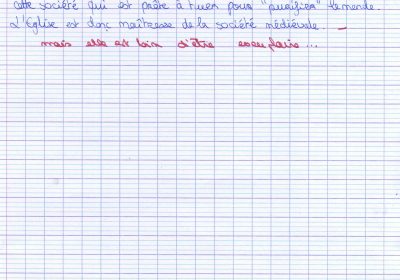 cette société qui est prête à tuer pour "purifier" le monde.
L'Eglise est donc maîtresse de la société médiévale.
mais elle est loin d'être exemplaire...